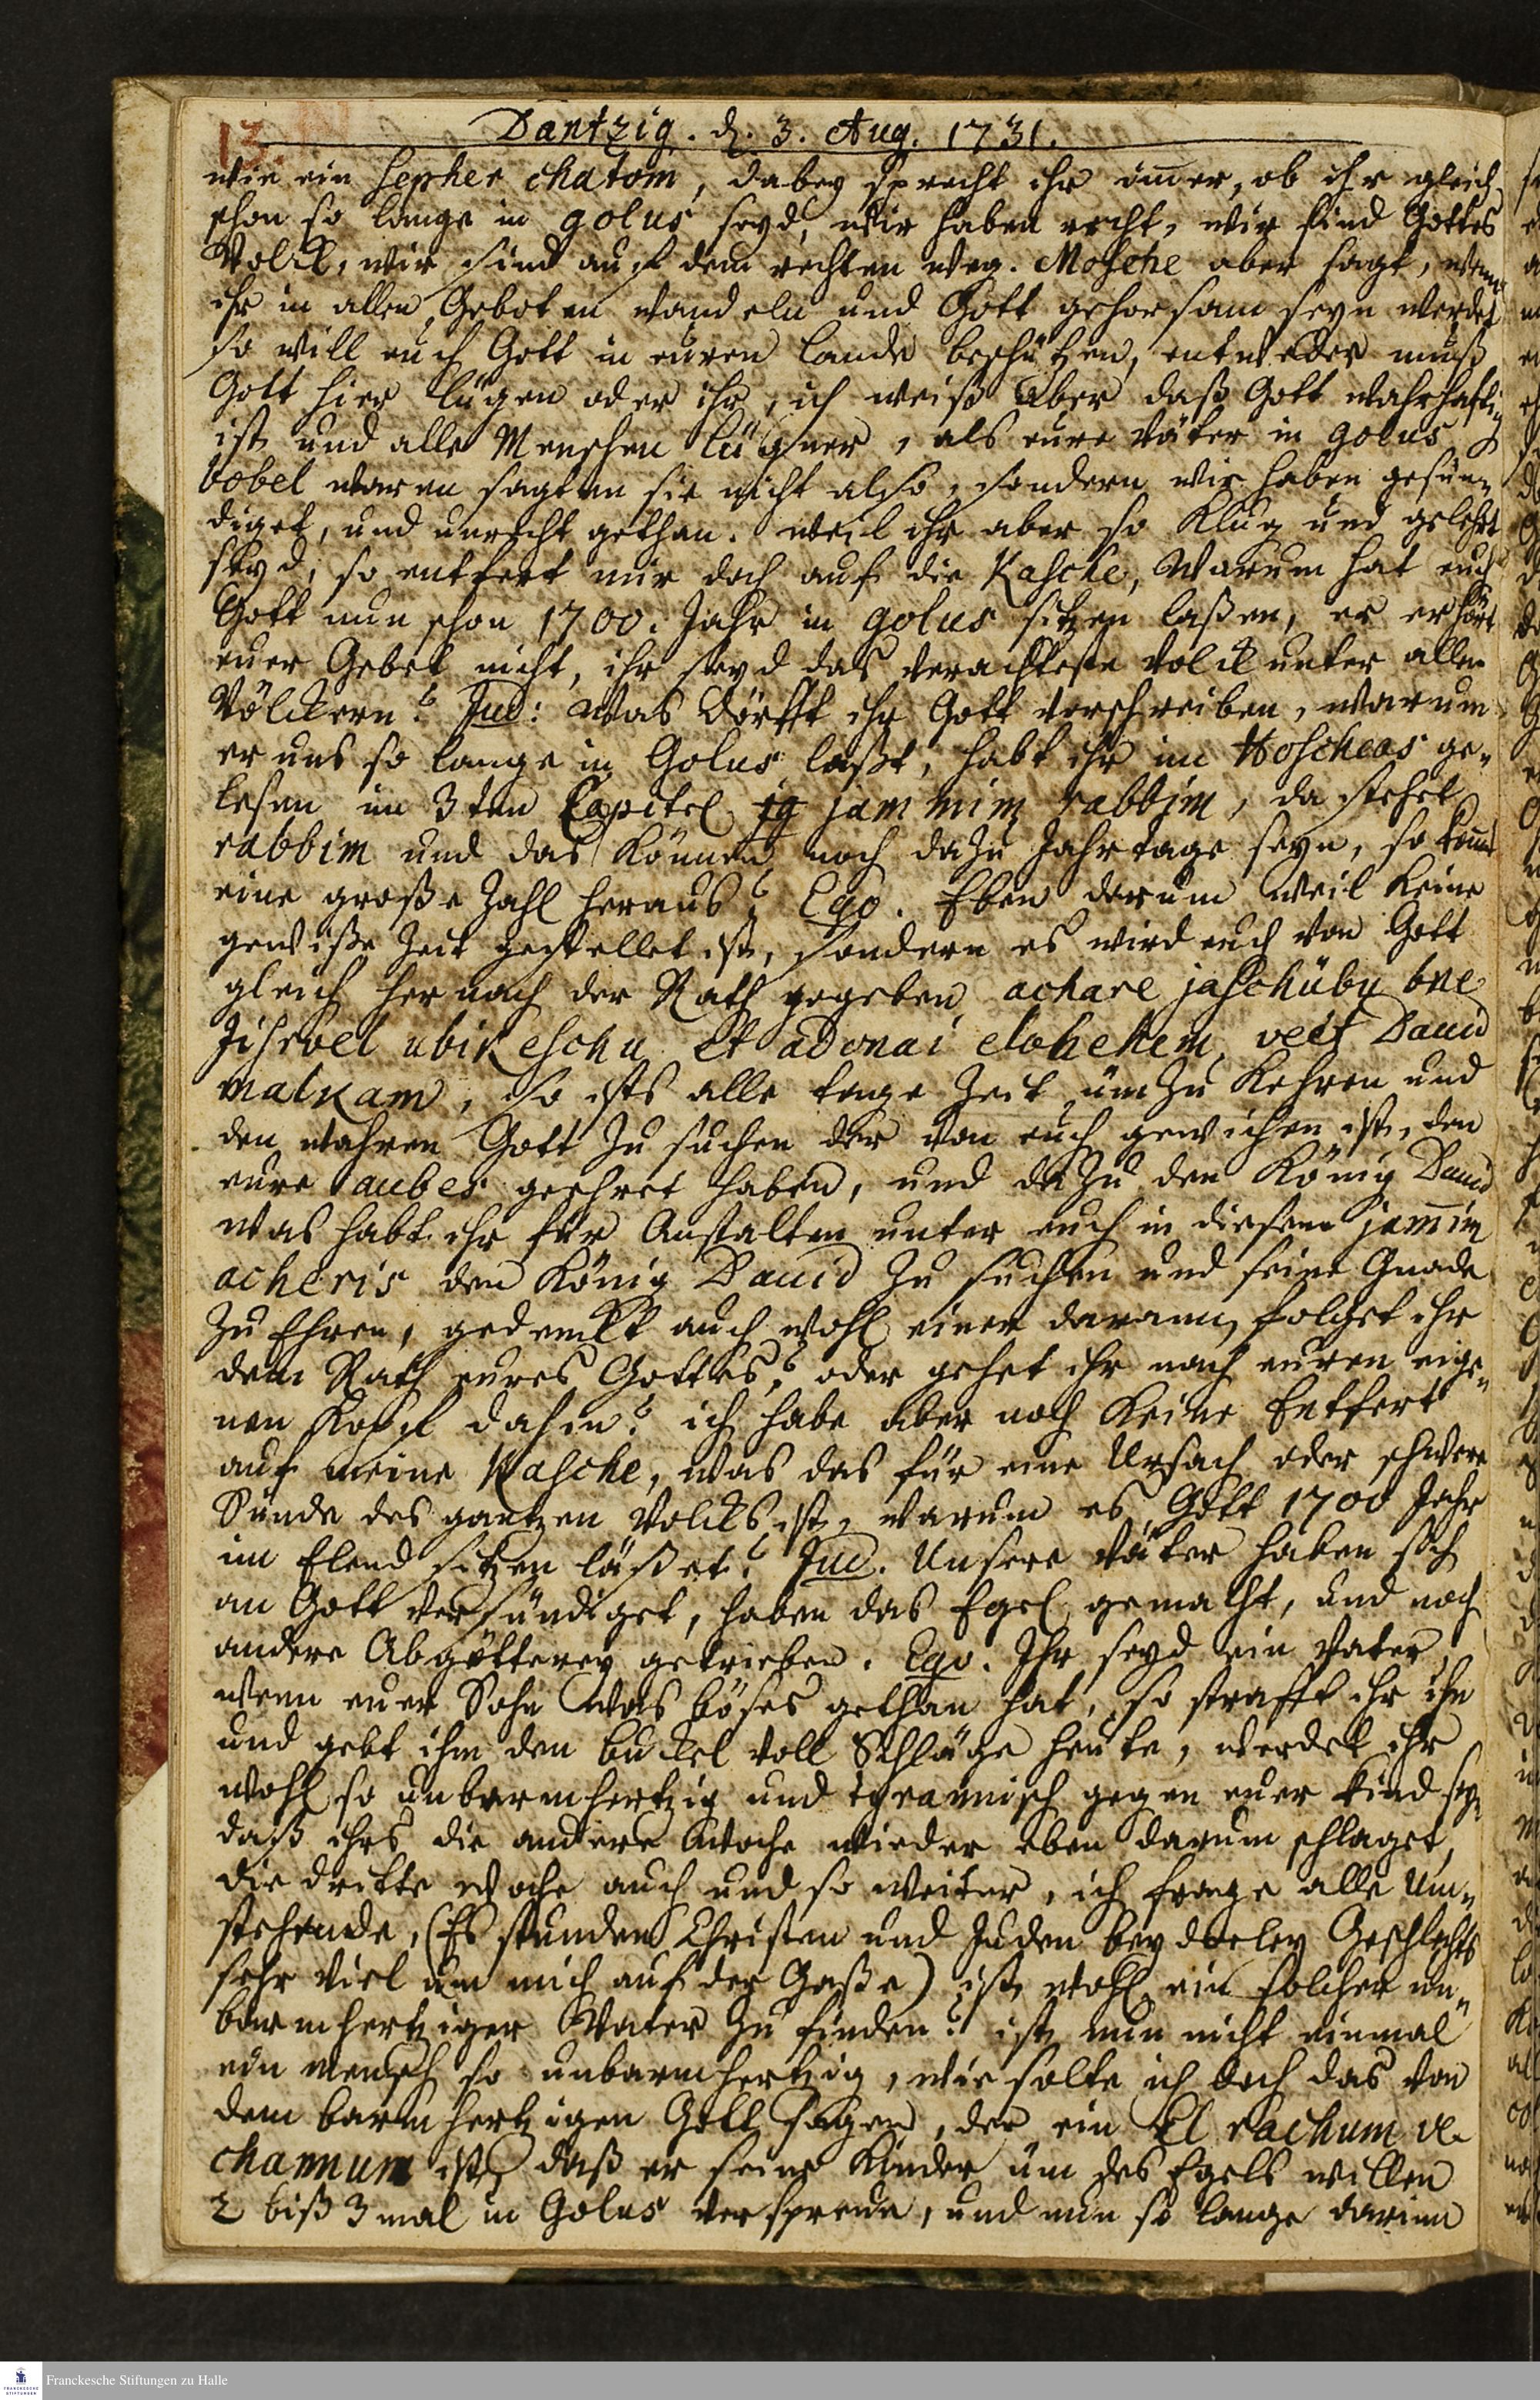 13.
Dantzig. d. 3. Aug. 1731.
wie ein Sepher chatom, dabey sprecht ihr im̄er, ob ihr gleich
schon so lange in golus seyd, wir haben recht, wir sind Gottes
Volck, wir sind auf dem rechten weg. Mosche aber sagt, wenn
ihr in allen Geboten wandeln und Gott gehorsam seyn werdet
so will euch Gott in euren Lande beschützen, entweder muß
Gott hier lügen oder ihr, ich weiß aber daß Gott wahrhafftig
ist und alle Menschen lügner, als eure Väter in golus
bobel waren sagten sie nicht also, sondern wir haben gesün„
diget, und unrecht gethan. weil ihr aber so klug und gelehrt
seyd, so entfert mir doch auf die Kasche, Warum hat euch
Gott nun schon 1700. Jahr in golus sitzen laßen, er erhört
euer Gebet nicht, ihr seyd das verachteste Volck unter allen
Völckern? Jud: Was dörfft ihr Gott vorschreiben, warum
er uns so lange in Golus laßt, habt ihr im Hoscheas ge„
lesen im 3ten Capitel jammim rabbim, da stehet
rabbim und das können noch dazu Jahrtage seyn, so kom̄t
eine große Zahl heraus? Ego. Eben darum weil keine
gewiße Zeit gestellet ist, sondern es wird euch von Gott
gleich hernach der Rath gegeben achare jaschübu bne
Jisroel ubikeschu et adonai elohehem, veet Dauid
malkam, so ists alle tage Zeit umzu kehren und
den wahren Gott zu suchen der von euch gewichen ist, den
eure aubes geehret haben, und dazu den König Dauid
was habt ihr für Anstalten unter euch in diesem jam̄im
acheris den König Dauid zu suchen und seine Gnade
zu Ehren, gedenckt auch wohl einer daran, folget ihr
dem Rath eures Gottes? oder gehet ihr nach euren eige„
nen Kopf dahin? ich habe aber noch keine Entfert
auf meine Kasche, was das für eine Ursach oder schwere
Sünde des gantzen Volcks ist, warum es Gott 1700 Jahr
im Elend sitzen läßet? Jud. Unsere Väter haben sich
an Gott versündiget, haben das Egel gemacht, und noch
andere Abgötterey getrieben. Ego. Ihr seyd ein Vater,
wenn euer Sohn was böses gethan hat, so strafft ihr ihn
und gebt ihm den buckel voll Schläge heute, werdet ihr
wohl so unbarmhertzig und tyrannisch gegen euer kind seyn
daß ihrs die andere Woche wieder eben darum schlaget,
die dritte Woche auch und so weiter, ich frage alle Um„
stehende, (Es stunden Christen und Juden beyderley Geschlechts
sehr viel um mich auf der Gaße) ist wohl ein solcher un„
barmhertziger Vater zu finden? ist nun nicht einmal
ein mensch so unbarmhertzig, wie solte ich doch das von
dem barmhertzigen Gott sagen, der ein El rachum ve
channum ist, daß er seine Kinder üm des Egels willen
2 biß 3 mal in Golus verstreue, und nun so lange darinn
Franckesche Stiftungen zu Halle